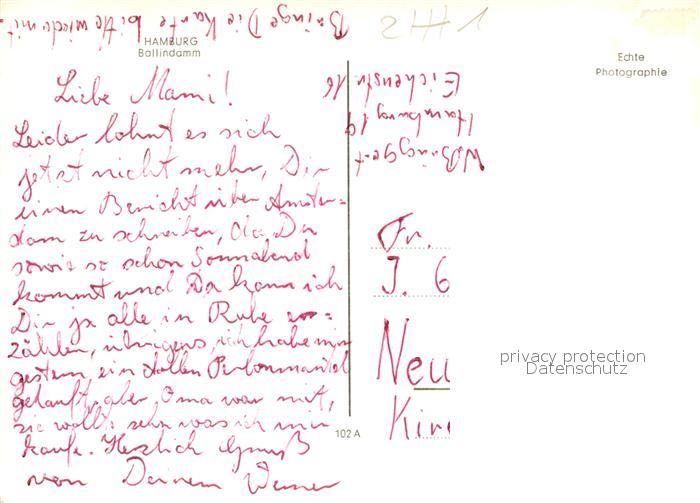 Bringe Die Karte bitte wieder mit
HAMBURG
Ballindamm
Echte
Photographie
Eichenstr. 16
Hamburg 19
Liebe Mami!
Leider lohnt es sich
jetzt nicht mehr, Dir
einen Bericht über Amster=
dam zu schreiben, da Du
sowie so schon Sonnabend
kommt und Da kann ich
Dir ja alle in Ruhe er=
zählen, übrigens, ich habe mir
gestern ein tollen
gekauft, aber Oma war mit,
sie wollte sehn was ich mir
kaufe. Herzlich Gruß
von Deinem Werner
Fr.
J. G
Neu
Kir
102 A
privacy protection
Datenschutz